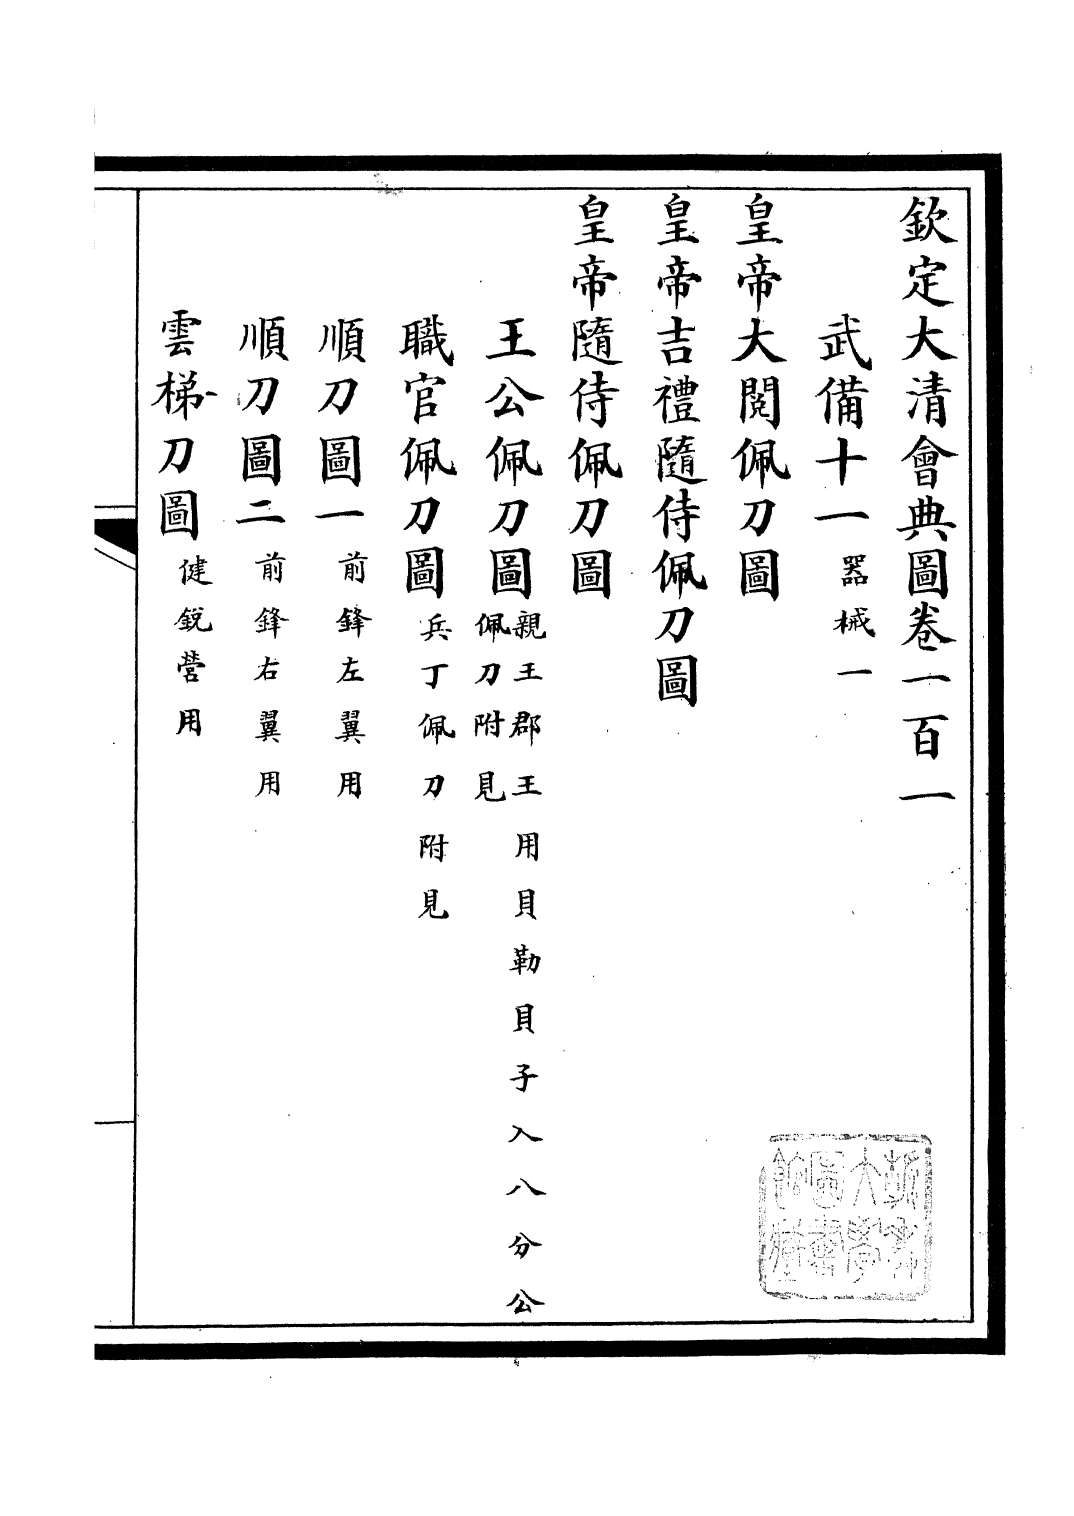 欽定大清會典圖卷一百一
武備十一器械一
皇帝大閱佩刀圖
皇帝吉禮隨侍佩刀圖
皇帝隨侍佩刀圖
王公佩刀圖親王郡王用貝勒貝子入八分公
佩刀附見
職官佩刀圖兵丁佩刀附見
順刀圖一前鋒左翼用
順刀圖二前鋒右翼用
雲梯刀圖健銳營用
浙東
大學
圖書
館藏